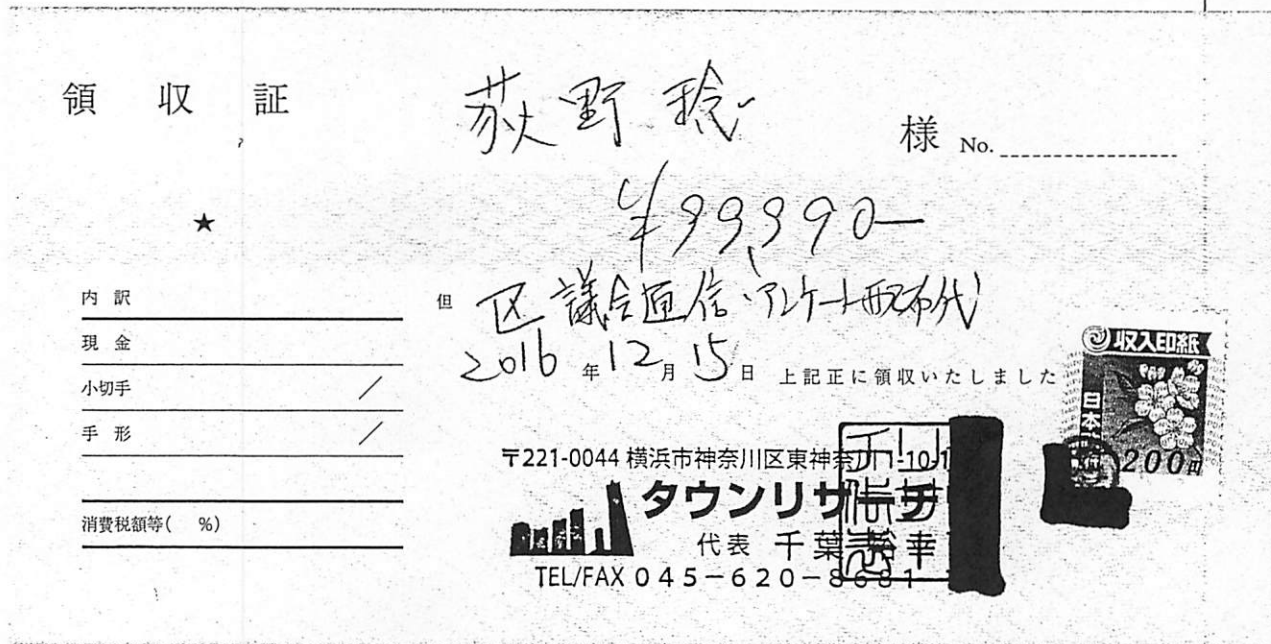 領 収 証
荻野 稔 様 No.
★
¥99,990-
内 訳
現 金
小切手
手 形
消費税額等( %)
但 区議会通信・アンケート配布代
2016 年 12 月 15 日 上記正に領収いたしました
収入印紙
日本
200円
〒221-0044 横浜市神奈川区東神奈川1-10-1
タウンリサーチ
代表 千葉 裕幸
TEL/FAX 045-620-8681